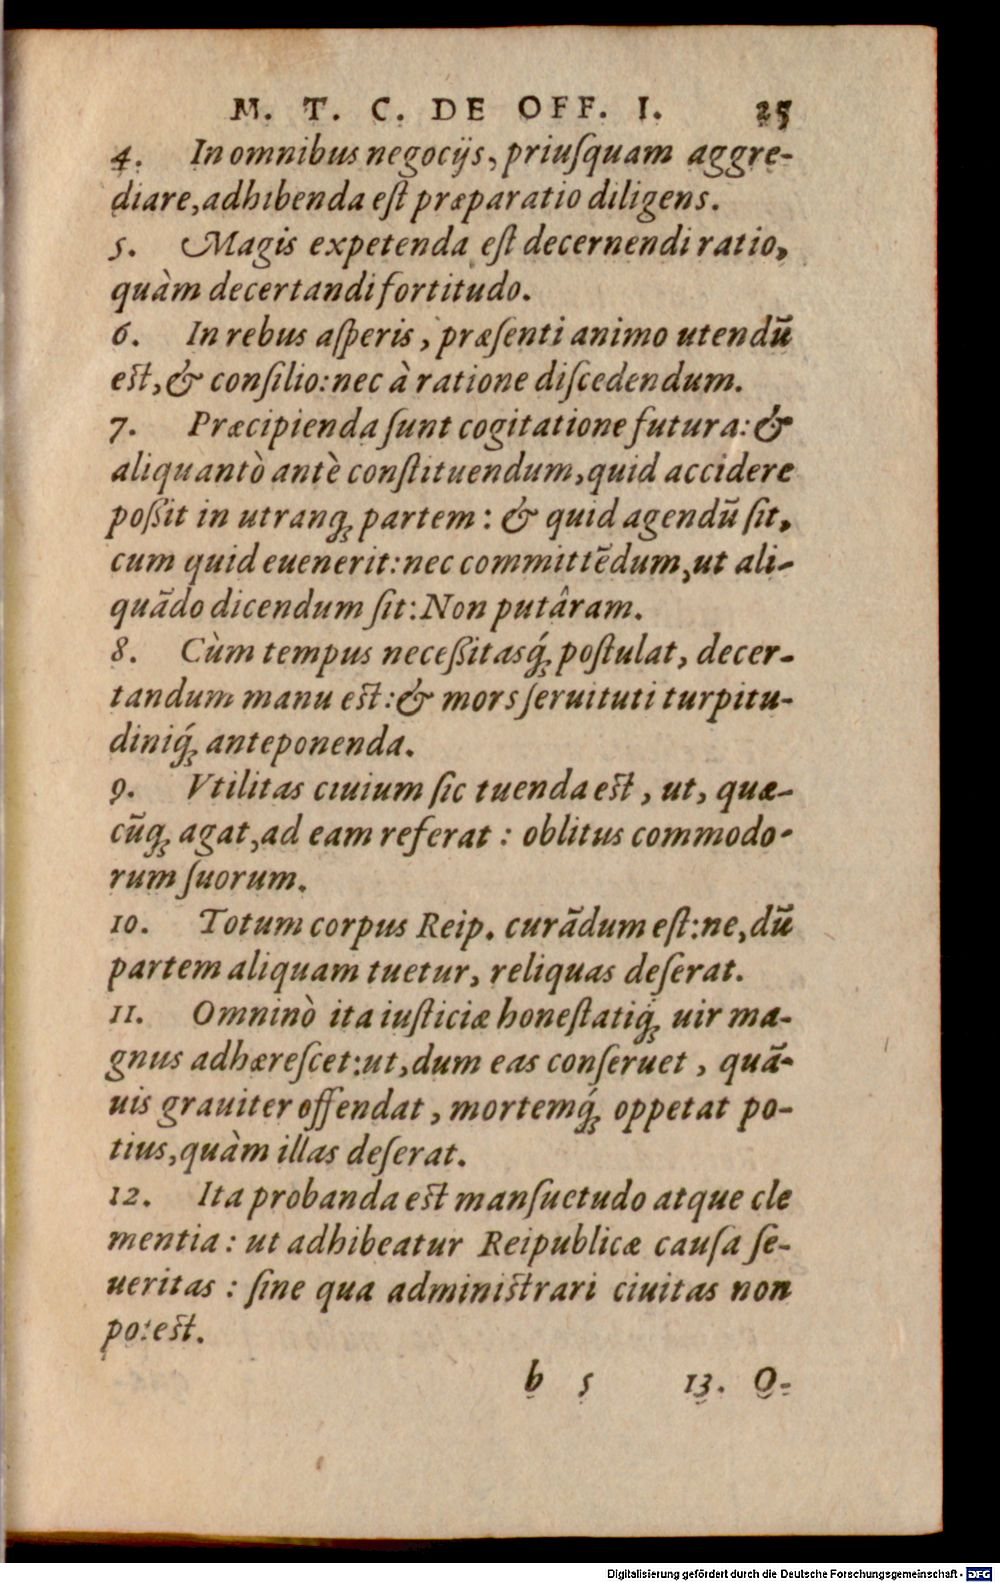 M. T. C. DE OFF. I. 25
4. In omnibus negocijs, priuſquam aggre-
diare, adhibenda eſt præparatio diligens.
5. Magis expetenda eſt decernendi ratio,
quàm decertandi fortitudo.
6. In rebus aſperis, præſenti animo utendū
eſt, & conſilio: nec à ratione diſcedendum.
7. Præcipienda ſunt cogitatione futura: &
aliquantò antè conſtituendum, quid accidere
poßit in utranq; partem: & quid agendū ſit,
cum quid euenerit: nec committēdum, ut ali-
quādo dicendum ſit: Non putâram.
8. Cùm tempus neceßitasq́; poſtulat, decer-
tandum manu eſt: & mors ſeruituti turpitu-
diniq́; anteponenda.
9. Vtilitas ciuium ſic tuenda eſt, ut, quæ-
cūq; agat, ad eam referat: oblitus commodo-
rum ſuorum.
10. Totum corpus Reip. curādum eſt: ne, dū
partem aliquam tuetur, reliquas deſerat.
11. Omninò ita iuſticiæ honeſtatiq́; uir ma-
gnus adhæreſcet: ut, dum eas conſeruet, quā-
uis grauiter offendat, mortemq́; oppetat po-
tius, quàm illas deſerat.
12. Ita probanda eſt manſuetudo atque cle
mentia: ut adhibeatur Reipublicæ cauſa ſe-
ueritas: ſine qua adminiſtrari ciuitas non
poteſt.
b 5 13. O-
Digitalisierung gefördert durch die Deutsche Forschungsgemeinschaft - DFG